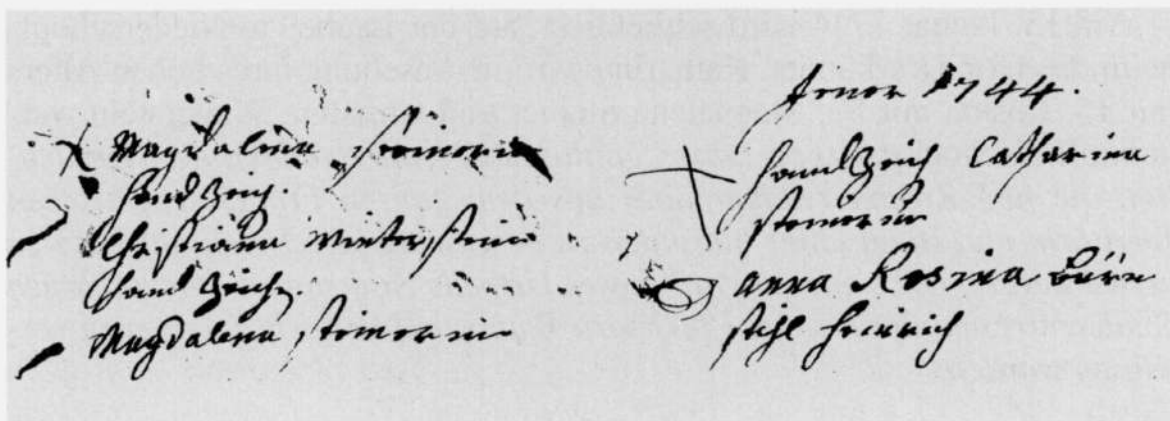 Magdalena
hand Zeich.
Christiana Winterstein
hand Zeich.
Magdalena steinerin
1744.
hand Zeich Catharina
steinerin
anna Rosina Bürn
stihl heinrich